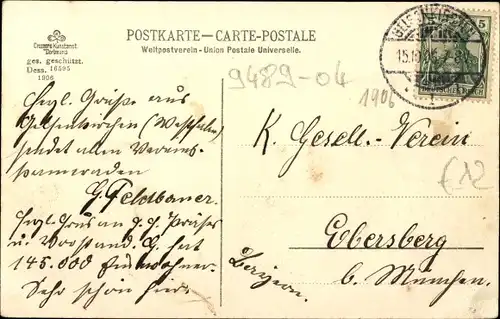 POSTKARTE—CARTE-POSTALE
Weltpostverein - Union Postale Universelle.
Cruewells Kunstanst.
Dortmund
ges. geschützt.
Dess. 16595
1906
5
GELSENKIRCHEN
15.10.06. 7-8
DEUTSCHES REICH
9489-04
1906
€12
Herzl. Grüße aus
Gelsenkirchen (Westfalen)
sendet allen Vereins-
kameraden
G. Feldbauer.
Herzl. Gruss an H. H. Präses
u. Vorstand. G. hat
145.000 Einwohner.
Sehr schön hier.
K. Gesell.-Verein
Ebersberg
b. München.
Bayern.